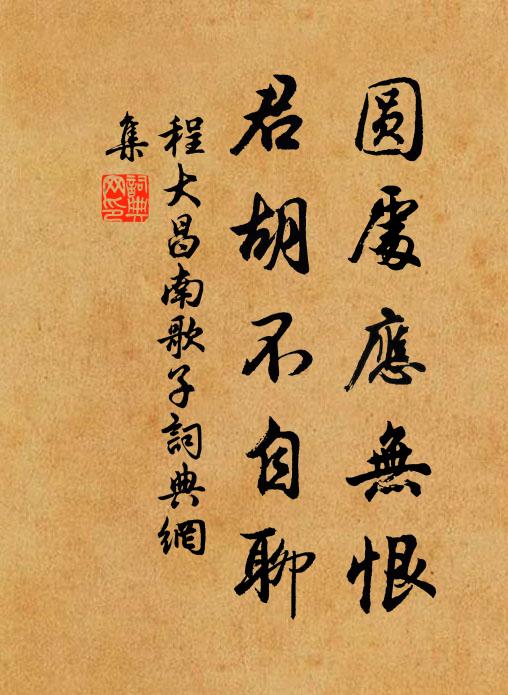 圓處應無恨
君胡不自聊
程大昌南歌子詞典網
集
詞典
网印